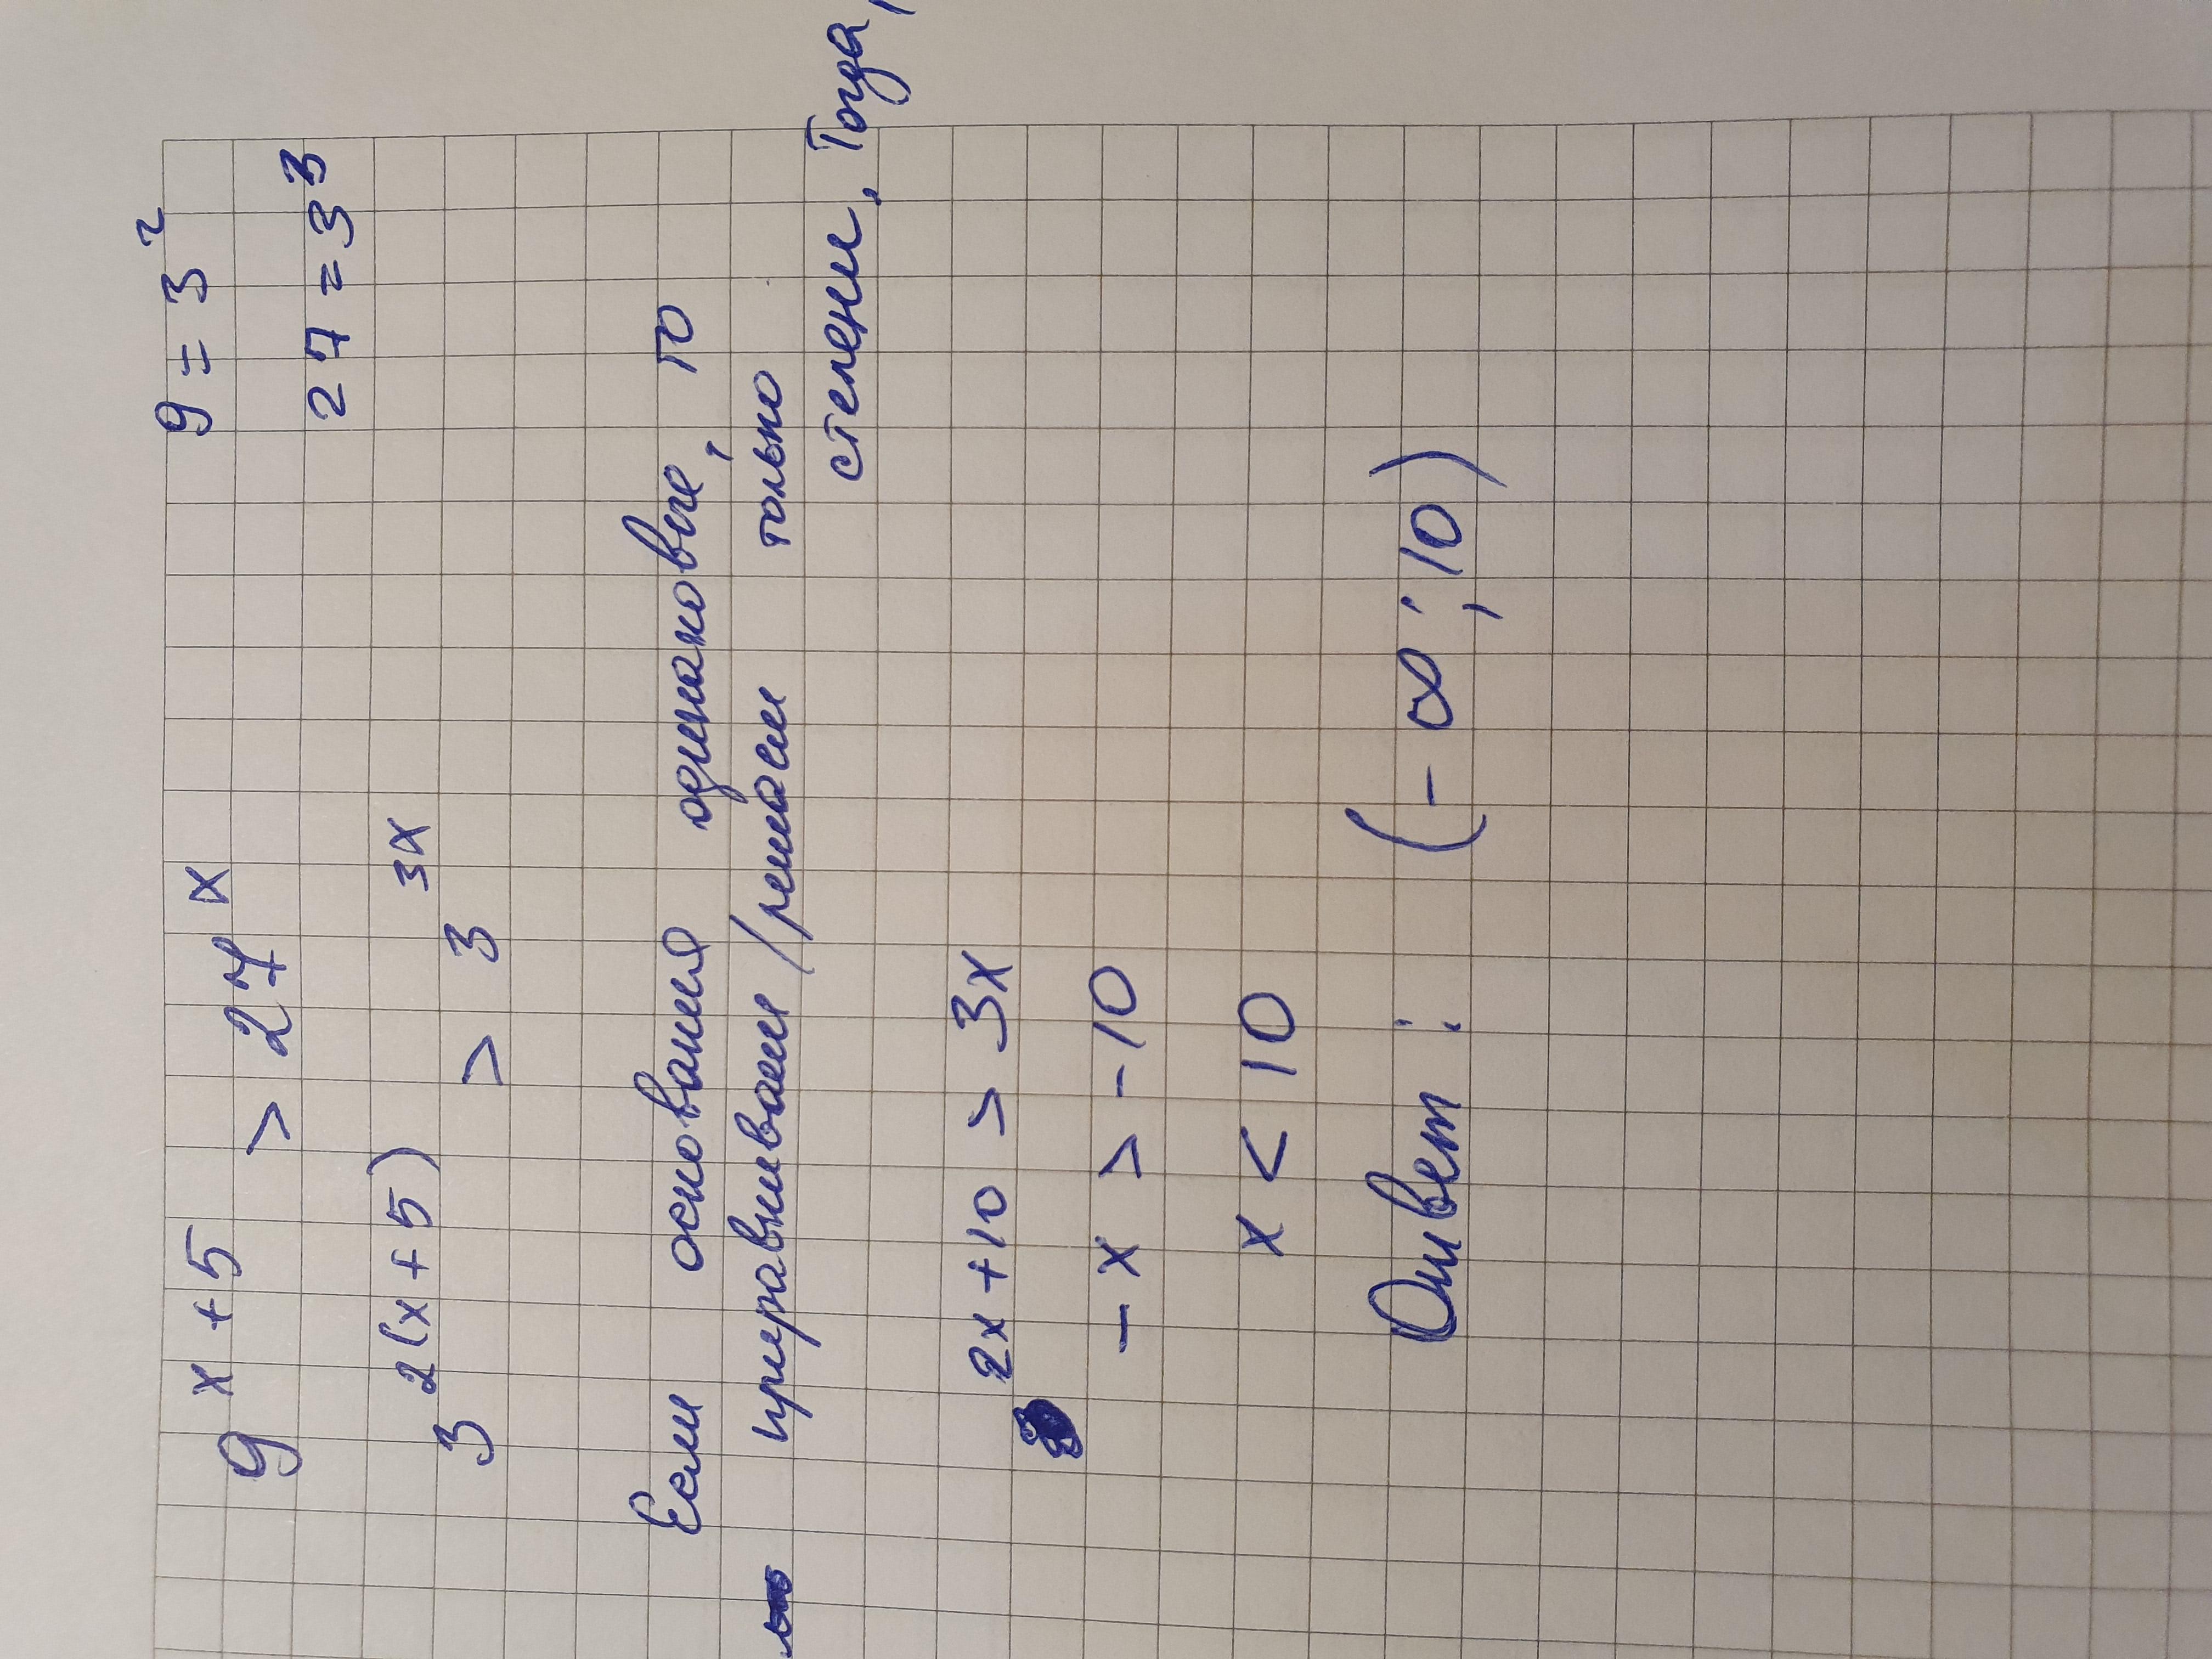 9^(x+5) > 27^x 9 = 3^2
27 = 3^3
3^(2(x+5)) > 3^(3x)
Если основания одинаковые, то
приравниваем/решаем только
степени. Тогда,
2x+10 > 3x
-x > -10
x < 10
Ответ: (-∞; 10)